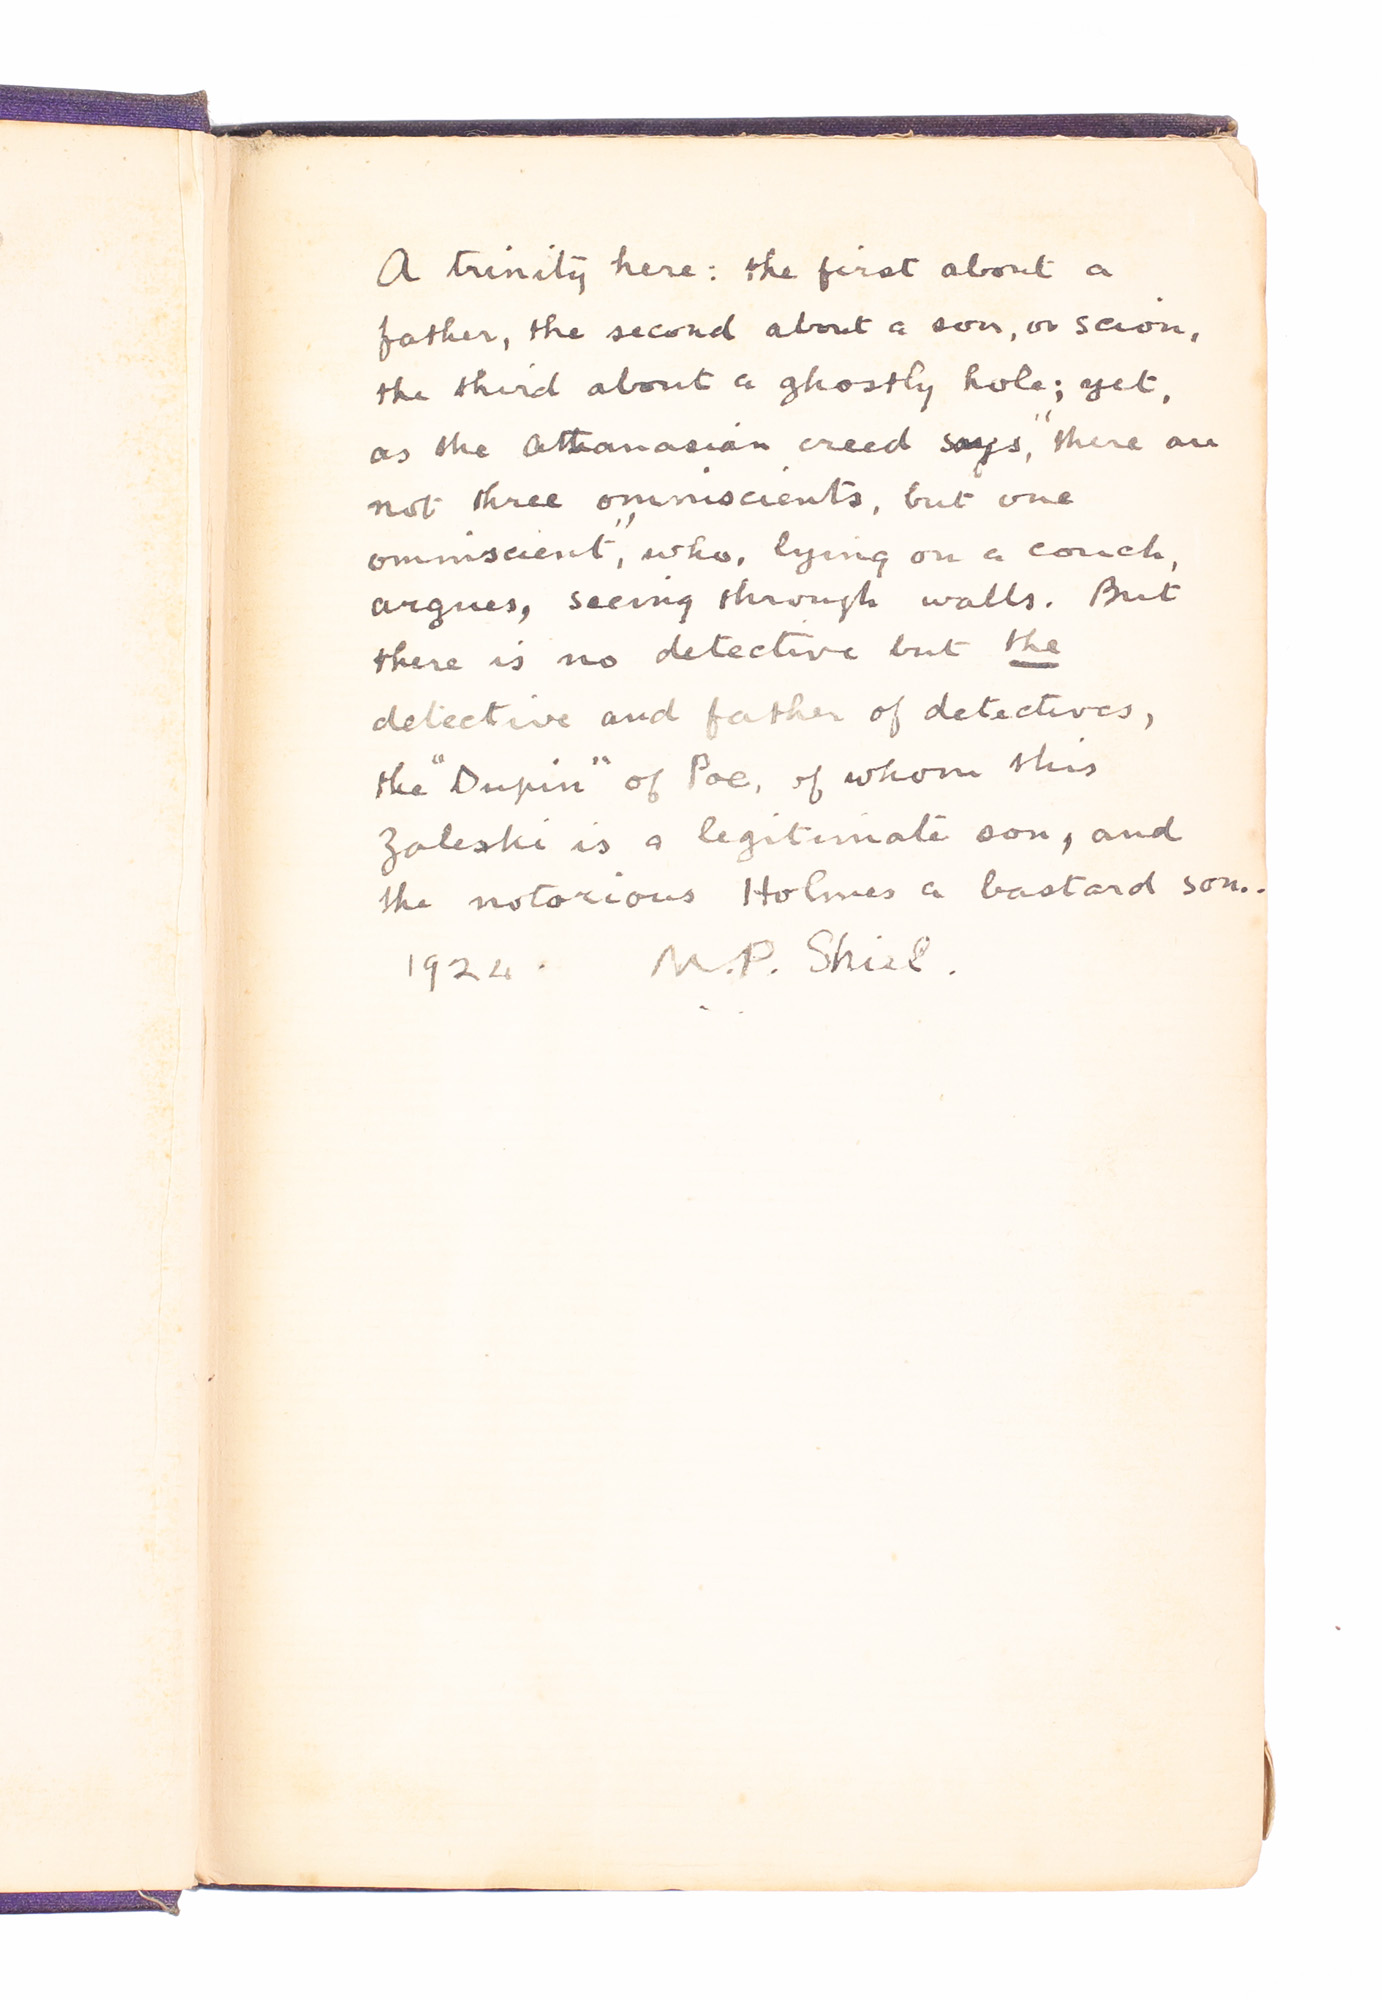 A trinity here: the first about a
father, the second about a son, or scion,
the third about a ghostly hole; yet,
as the Athanasian creed says, "there are
not three omniscients, but one
omniscient", who, lying on a couch,
argues, seeing through walls. But
there is no detective but the
detective and father of detectives,
the "Dupin" of Poe, of whom this
Zaleski is a legitimate son, and
the notorious Holmes a bastard son..
1924. M.P. Shiel.